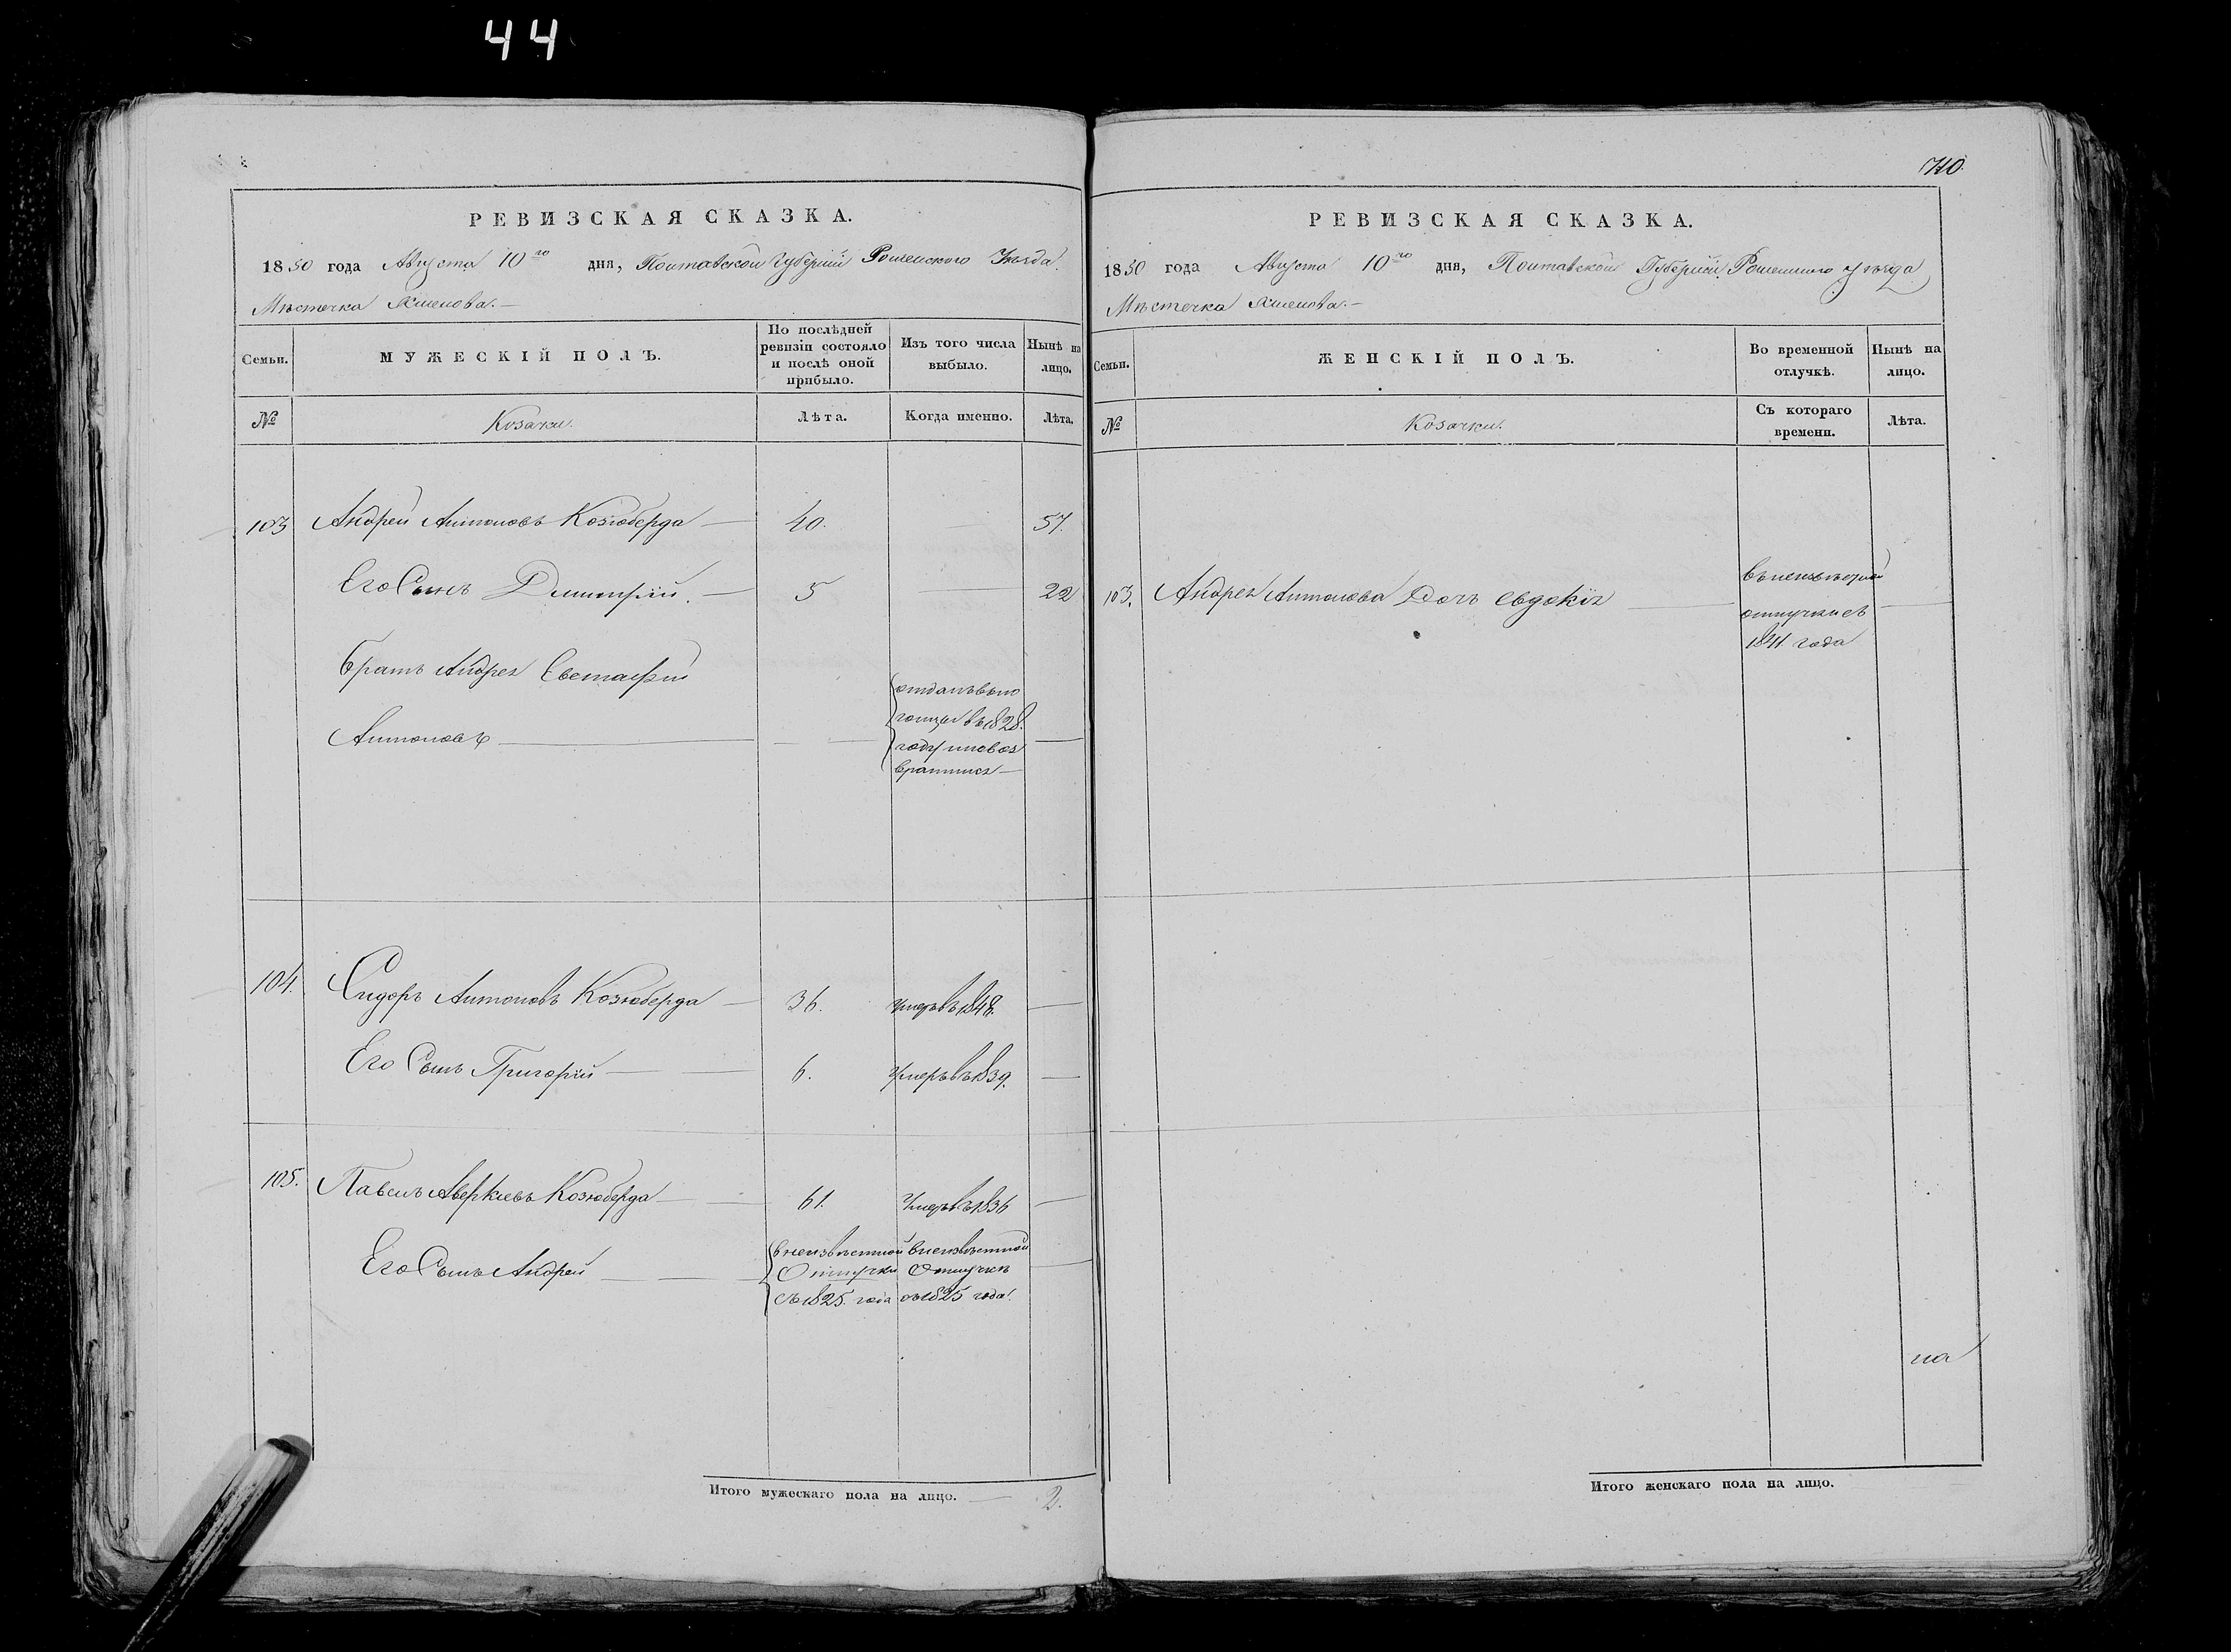 44
РЕВИЗСКАЯ СКАЗКА.
1850 года Августа 10го дня, Полтавской Губерніи Роменского Уѣзда.
Мѣстечка Хмелова.
Семьи.
МУЖЕСКІЙ ПОЛЪ.
По послѣдней ревизіи состояло и послѣ оной прибыло.
Изъ того числа выбыло.
Нынѣ на лицо.
№
Козаки.
Лѣта.
Когда именно.
Лѣта.
103 Андрей Антоновъ Козюберда 40. 57.
Его Сынъ Димитрій. 5 22
Братъ Андрея Евстафій
Антоновъ
отданъ въ по
гонцы въ 1828.
году и невоз
вратился
104. Сидоръ Антоновъ Козюберда 36. Умеръ въ 1848.
Его Сынъ Григорій 6. Умеръ въ 1839.
105. Павелъ Аверкіевъ Козюберда 61. Умеръ въ 1836
Его Сынъ Андрей
в неизвѣстной
Отлучки
съ 1825. года
в неизвѣстной
Отлучкѣ
съ 1825 года.
Итого мужескаго пола на лицо. 2.
710.
РЕВИЗСКАЯ СКАЗКА.
1850 года Августа 10го дня, Полтавской Губерніи Роменского уѣзда
Мѣстечка Хмелова.
Семьи.
ЖЕНСКІЙ ПОЛЪ.
Во временной отлучкѣ.
Нынѣ на лицо.
№
Козачки.
Съ котораго времени.
Лѣта.
103. Андрея Антонова Дочь Евдокія
въ неизвѣстной
отлучки съ
1841 года
на
Итого женскаго пола на лицо.